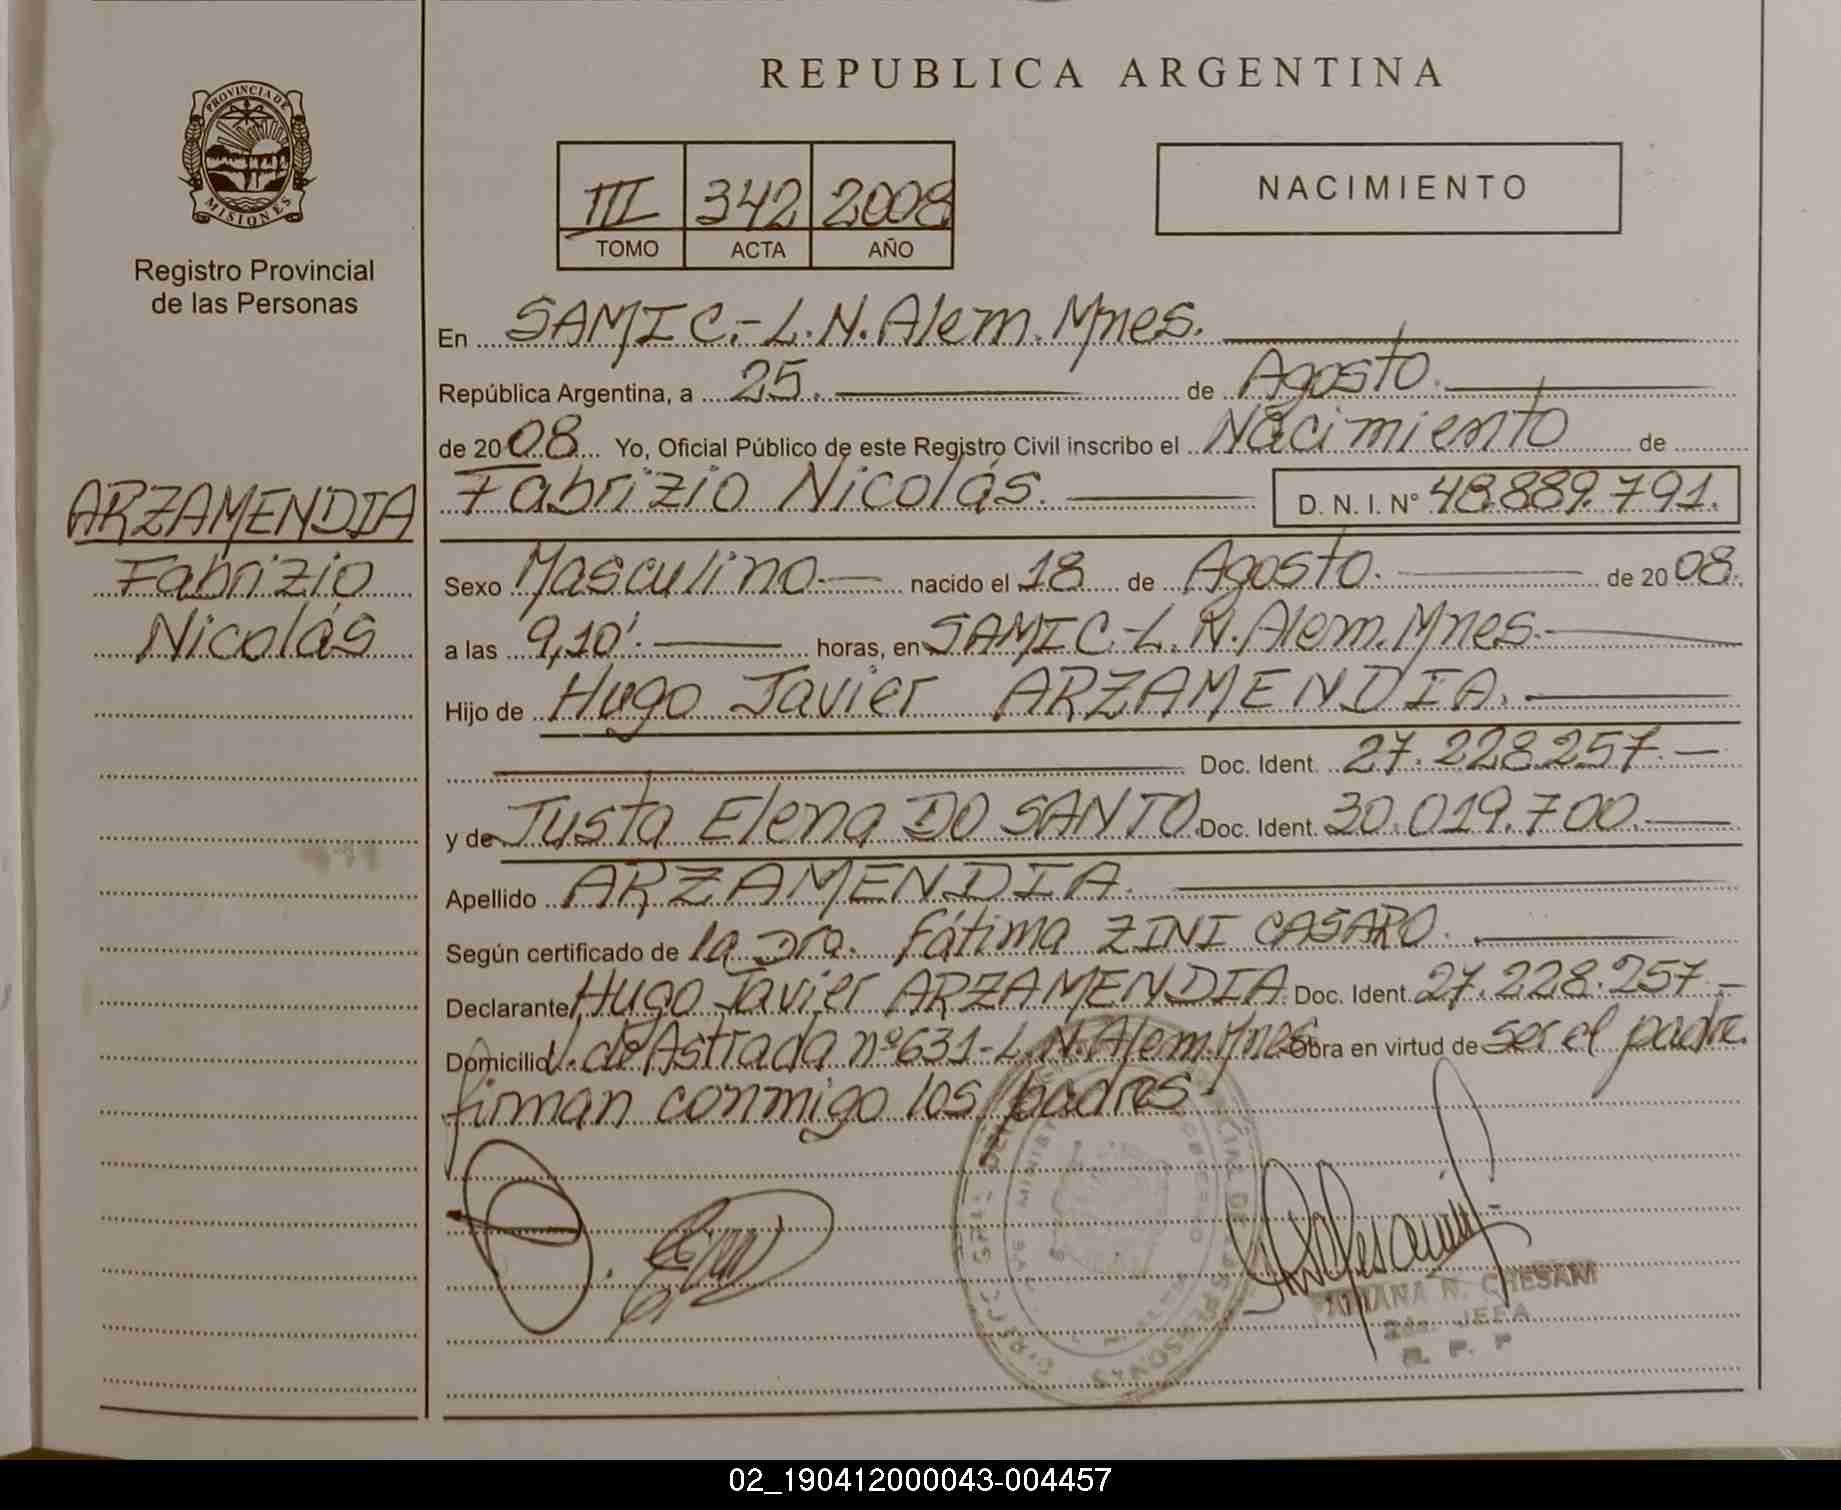 REPUBLICA ARGENTINA
PROVINCIA DE
MISIONES
Registro Provincial
de las Personas
III 342 2008
TOMO ACTA AÑO
NACIMIENTO
En SAMIC.-L.N.Alem.Mnes.
República Argentina, a 25. de Agosto.
de 2008 Yo, Oficial Público de este Registro Civil inscribo el Nacimiento de
Fabrizio Nicolás. D. N. I. N° 48.889.791.
ARZAMENDIA
Fabrizio
Nicolás
Sexo Masculino.- nacido el 18 de Agosto. de 2008.
a las 9,10'. horas, en SAMIC.-L.N.Alem.Mnes.-
Hijo de Hugo Javier ARZAMENDIA.
Doc. Ident. 27.228.257.-
y de Justa Elena DO SANTO. Doc. Ident. 30.019.700.-
Apellido ARZAMENDIA.
Según certificado de la Dra. Fátima ZINI CASARO.
Declarante Hugo Javier ARZAMENDIA. Doc. Ident. 27.228.257.-
Domicilio de Astrada nº631-L.N.Alem.Mnes. Obra en virtud de ser el padre.
firman conmigo los padres
N. CHESANI
2da. JEFA
R. P. P
02_190412000043-004457